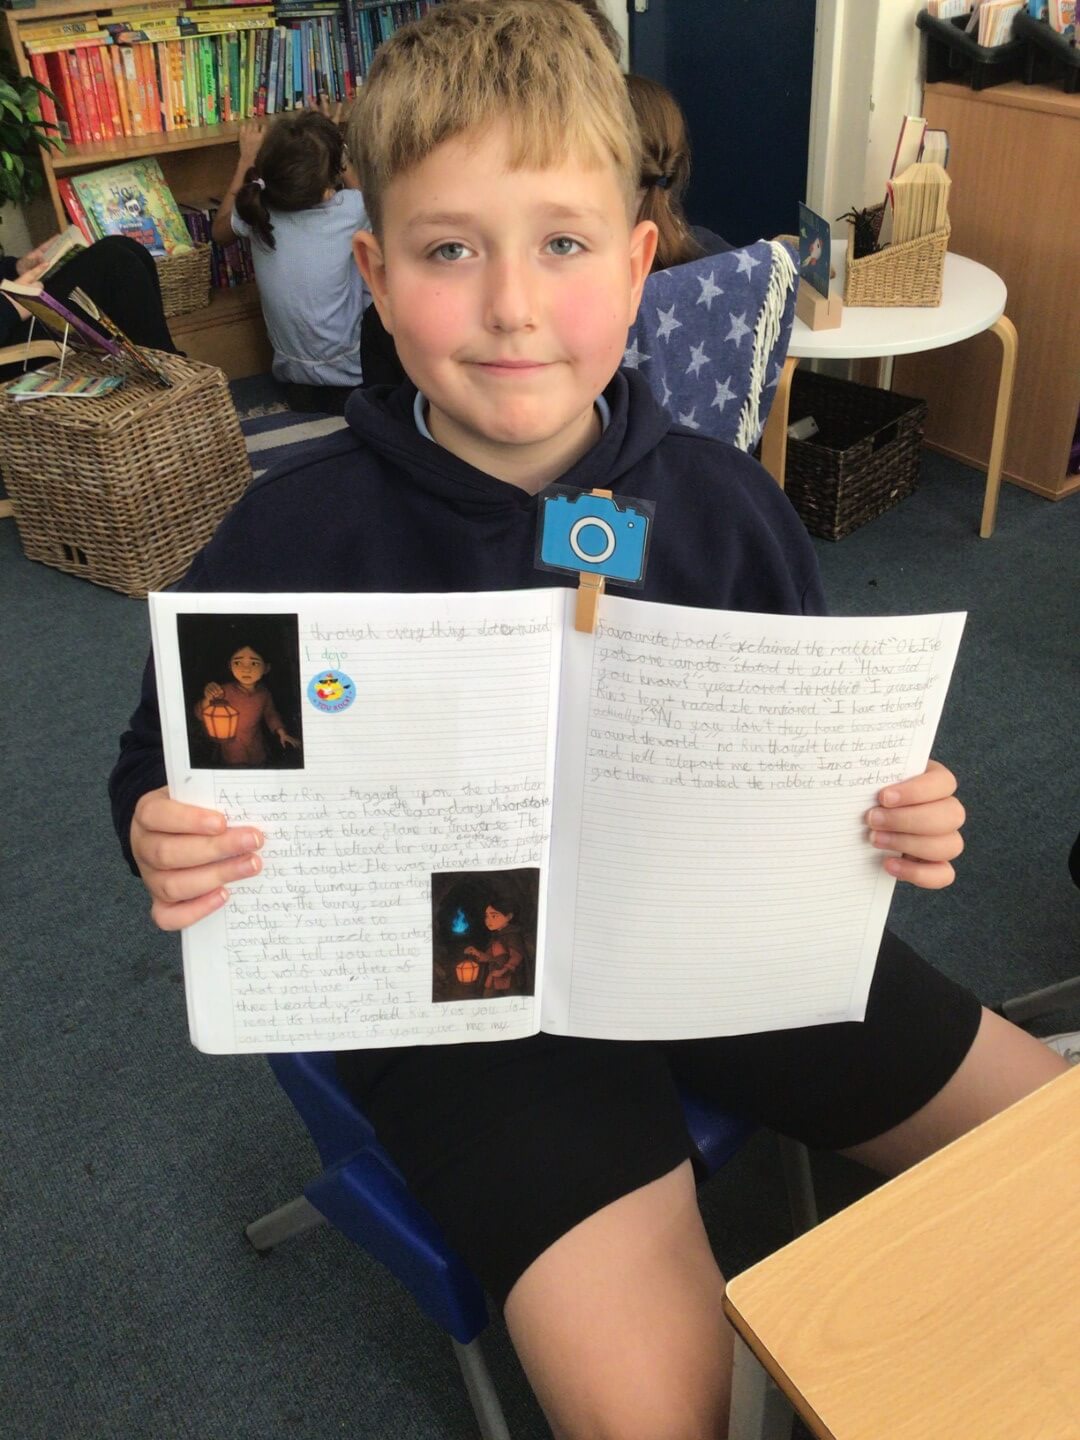 through everything determined
I dojo
YOU ROCK!
At last, Rin stepped upon the chamber
that was said to have the legendary Moonstone
the first blue flame in the universe. She
couldn't believe her eyes, it was
she thought. She was relieved until she
saw a big bunny guarding
the door. The bunny said
softly "You have to
complete a puzzle to enter
I shall tell you a clue
Red wolf with three of
what you have" "The
three headed wolf do I
need its heads!" asked Rin "Yes you do I
can teleport you if you give me my
favourite food" exclaimed the rabbit "Ok I've
got some carrots" stated the girl. "How did
you know!" questioned the rabbit "I guessed"
Rin's heart raced she mentioned "I have the heads
actually!" "No you don't they have been scattered
around the world. no Rin thought but the rabbit
said teleport me to them. In no time she
got them and thanked the rabbit and went home